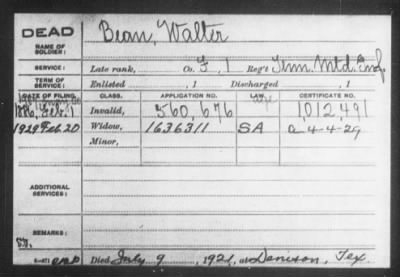 DEAD
NAME OF SOLDIER: Bean, Walter
SERVICE: Late rank, Co. F, 1 Reg't Tenn. Mtd. Inf.
TERM OF SERVICE: Enlisted , 1 Discharged , 1
DATE OF FILING. CLASS. APPLICATION NO. LAW. CERTIFICATE NO.
1886, Feb. 1 Invalid, 560,676 1,012,491
1929 Feb 20 Widow, 1636311 SA a-4-4-29
Minor,
ADDITIONAL SERVICES:
REMARKS:
Died July 9, 1921, at Denison, Tex.